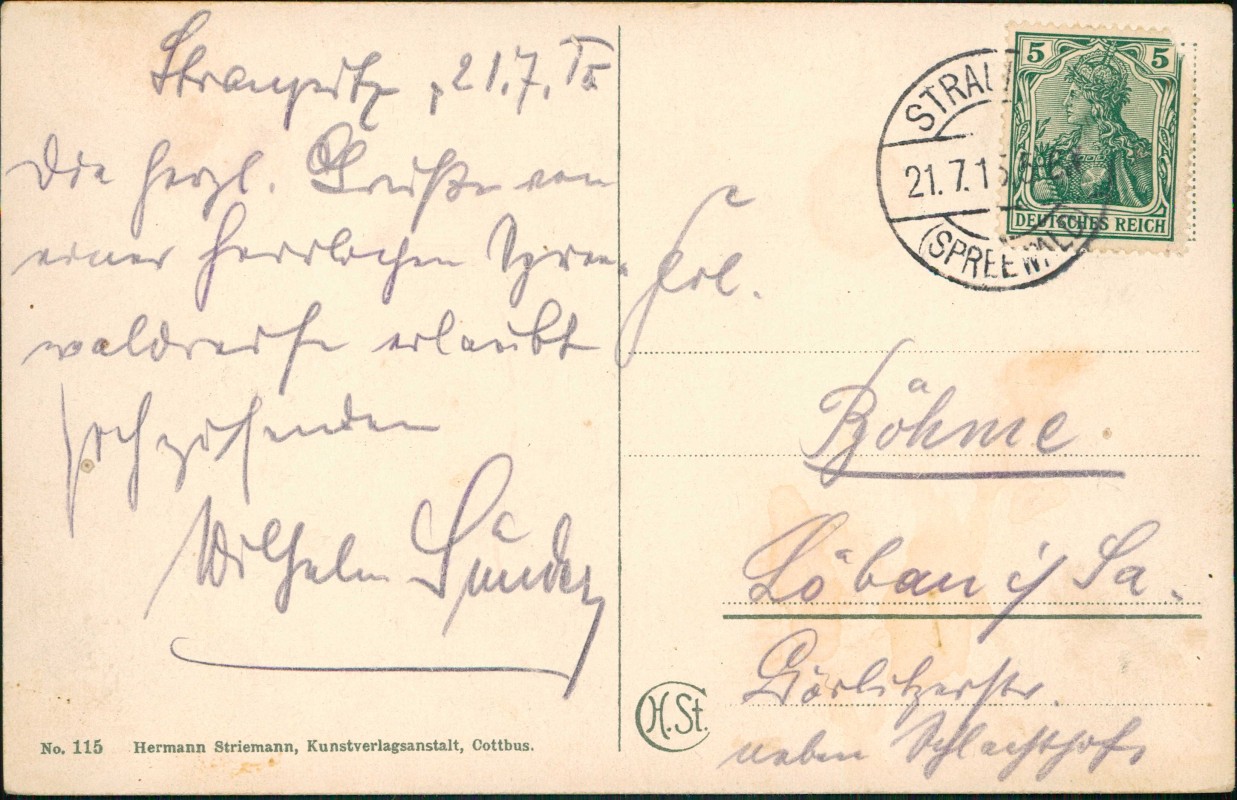 Straupitz, 21.7.15
Die herzl. Grüße von
einer herrlichen Spree-
waldreise erlaubt
hochzusenden
Wilhelm Sünder
No. 115 Hermann Striemann, Kunstverlagsanstalt, Cottbus.
5 5
DEUTSCHES REICH
STRAU
21.7.15
(SPREEWALD)
Frl.
Böhme
Löbau i/Sa.
Görlitzerstr.
neben Schlachthof
H.St.